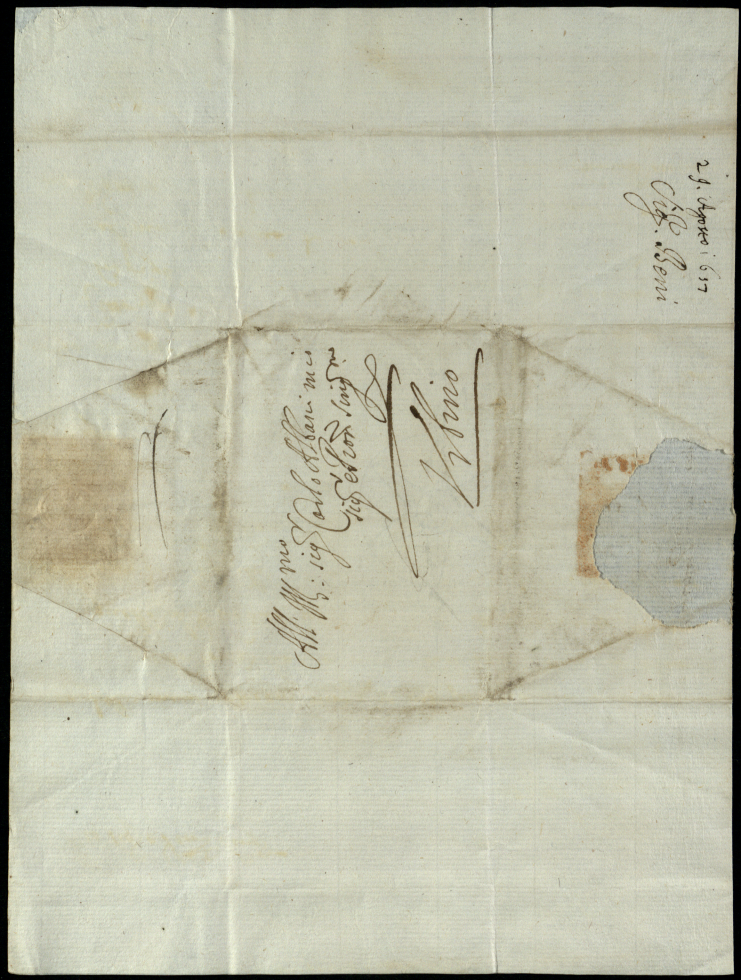 29. Agosto 1637
Sig.r Beni
All' Ill.mo
sig.r Carlo Albani mio
sig.r et Pron sing.mo
Urbino